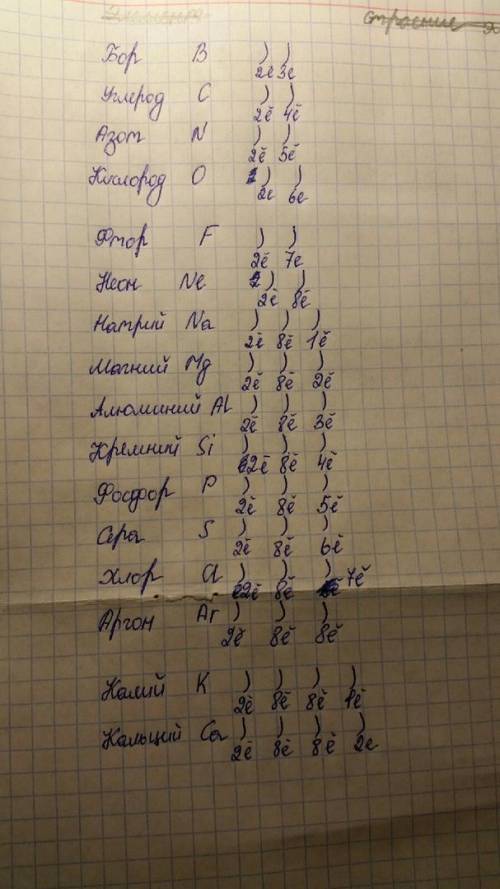 Бор B ) )
2ē 3ē
Углерод C ) )
2ē 4ē
Азот N ) )
2ē 5ē
Кислород O ) )
2e 6e
Фтор F ) )
2ē 7e
Неон Ne ) )
2ē 8ē
Натрий Na ) ) )
2ē 8ē 1ē
Магний Mg ) ) )
2ē 8ē 2ē
Алюминий Al ) ) )
2ē 8ē 3ē
Кремний Si ) ) )
2ē 8ē 4ē
Фосфор P ) ) )
2ē 8ē 5ē
Сера S ) ) )
2ē 8ē 6ē
Хлор Cl ) ) ) 7ē
2ē 8ē
Аргон Ar ) ) )
2ē 8ē 8ē
Калий K ) ) ) )
2ē 8ē 8ē 1ē
Кальций Ca ) ) ) )
2ē 8ē 8ē 2e